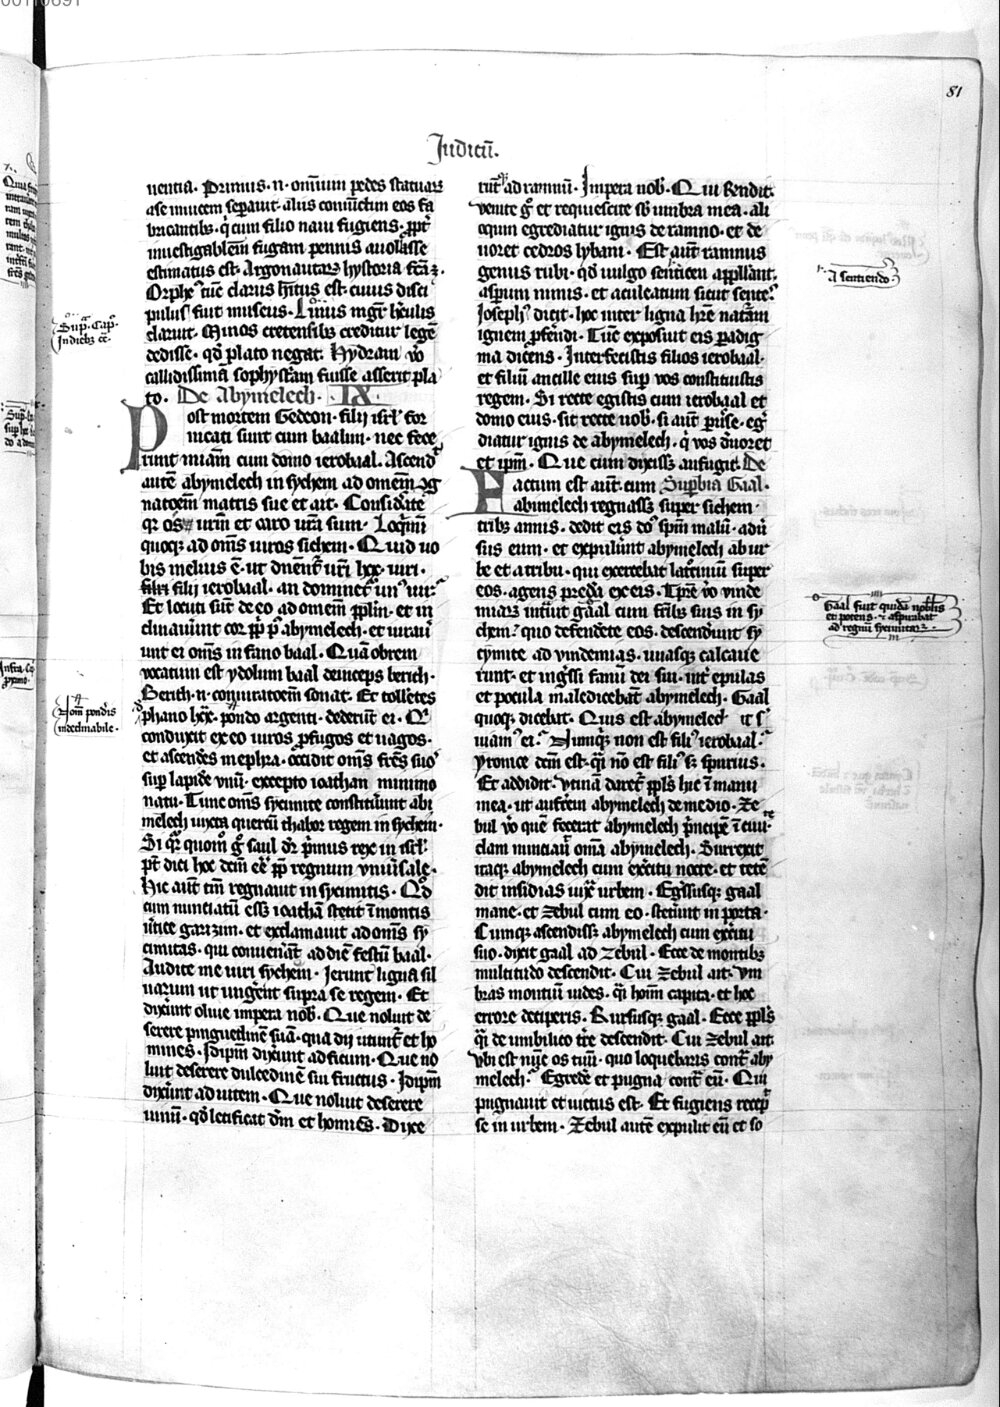 00110691
81
Iudicū.
uentia. Primus .n. omnium pedes statuar̄
ase inuicem separauit. aliis coniūctim eos fa
bricantibꝫ. q̇ cum filio naui fugiens. ꝓpt̾
inuestigabilem fugam pennis auolasse
estimatus est. Argonautarꝫ hystoria fcā ꝫ.
Orphe᷒ tūc clarus hītus est. cuius disci
pulus fuit museus. Linus mgr̄ hẽulis
claruit. Minos cretensibꝫ creditur lege
dedisse. qđ plato negat. Hydram v̊o
callidissimā sophystam fuisse asserit pla
to. De Abymelech. IX.
Post mortem Gedeon. filij isrl̓ for
nicati sunt cum baalim. nec fece
runt miam cum domo ierobaal. Ascend̾
autē abymelech in sychem ad omēm ꝯg
natoēm matris sue et ait. Considate
qꝫ os urm et caro ur̄a sum. Loq̄mi
quoqꝫ ad om̄s uiros sichem. Quid uo
bis melius ē. ut dn̄ent̾ ur̄i lxx. uiri.
filij ierobaal. an dominet̾ un᷒ uir.
Et locuti sūt de eo ad omēm ppl̄m. et in
clinauerūt cor pp̄ p̾ abymelech. et iurau̾
unt ei om̄s in fano baal. Quā obrem
vocatum est ydolum baal deinceps berith.
Berith .n. coniuratoēm sonat. Et tollētes
phano lxx. pondo argenti. dederūt ei. Q̇
conduxit ex eo uiros ꝓfugos et uagos.
et ascendēs in ephra. occidit om̄s fr̄es suo᷒
sup̱ lapidē vnū. excepto ioathan minimo
natu. Tunc om̄s sycimite constituūt abi
melech iuxta quercū thabor regem in sychem.
Si qr̄ quom̊ g̊ saul dr̄ p̄mus rex in isrl̓.
pt̄ dici hoc dcm̄ eē pp̄ regnum vniūsale.
Hic aūt tm̄ regnauit in sycimitis. Qđ
cum nunciatū ess̄ ioathā stetit ī montis
ūtice garizim. et exclamauit ad om̄s sy
cimitas. qui conuenāt ad diē festū baal.
Audite me uiri sychem. Ierunt ligna sil
uarum ut ungent supra se regem. Et
dix̾unt oliue impera nob̄. Que noluit de
serere pinguedinē suā. qua dij utunt̾ et ho
mines. Idip̄m dix̾unt ad ficum. Que no
luit deserere dulcedinē sui fructus. Idip̄m
dix̾unt ad uitem. Que noluit deserere
uinū. qđ letificat dm̄ et homīēs. Dixe
rūt ad ramnū. Impera nob̄. Qui Rendit.
venite g̊ et requiescite sb̄ umbra mea. ali
oquin egrediatur ignis de ramno. et de
uoret cedros lybani. Est aūt ramnus
genus rubi. qđ uulgo senticem appellant.
aspum nimis. et aculeatum sicut sente᷒.
Ioseph᷒ dicit. hoc inter ligna hr̄e natam
ignem ꝓferēdi. Tūc exposuit eis padig
ma dicens. Interfecistis filios ierobaal.
et filiū ancille eius sup̱ vos constituistis
regem. Si recte egistis cum ierobaal et
domo eius. sit recte nob̄. si aūt p̱use. eg̾
diatur ignis de abymelech. q̇ vos d̾uoret
et ip̄m. Que cum dixiss̄ aufugit. De
Factum est aūt. cum Sup̱bia Gaal.
abimelech regnass̄ super sichem
tribꝫ annis. dedit eis dō sp̄m malū. adū
sus eum. et expulūnt abymelech ab ur
be et a tribu. qui exercebat latrociniū super
eos. agens preda ex eis. Tp̄re v̊o vinde
miarꝫ intūit gaal cum fr̄ibꝫ suis in sy
chem. quo defendēte eos. descendūnt sy
cymite ad vindemias. uuasqꝫ calcaue
runt. et ingssi fanū dei sui. int̾ epulas
et pocula maledicebāt abymelech. Gaal
quoqꝫ dicebat. Quis est abymelech ut s̾
uiam᷒ ei. Numqꝫ non est fili᷒ ierobaal.
yronice dcm̄ est. q̇ no est fili᷒ sꝫ spurius.
Et addidit. Vtinā daret̾ ppl̄s hic ī manu
mea. ut aufrēm abymelech de medio. Ze
bul v̊o quē fecerat abymelech p̄ncipē ī ciui
te
clam nunciau̾ om̄ia abymelech. Surrexit
itaqꝫ abymelech cum ex̾citu nocte. et tetē
dit insidias iux̄ urbem. Eg̾ssusqꝫ gaal
mane. et Zebul cum eo. stetūnt in porta.
Cumqꝫ ascendiss̄ abymelech cum ex̾citu
suo. dixit gaal ad Zebul. Ecce de montibꝫ
multitudo descendit. Cui Zebul ait. Vm
bras montiū uides. q̇ hoīm capita. et hoc
errore deciperis. Rursusqꝫ gaal. Ecce ppl̄s
q̇ de umbilico tr̄re descendit. Cui Zebul ait.
Vbi est nūc os tuū. quo loquebaris cont̾ aby
melech. Egrede et pugna cont̾ eū. Qui
pugnauit et uictus est. Et fugiens recep̄
se in urbem. Zebul autē expulit eū et so
Sup. Cap̊.
Iudicꝫ cē.
Nom̄ pond̾is
indeclinabile.
A sentiendo.
Gaal fuit quidā nobilis
et potens. et aspirabat
ad regnū sycimitarꝫ.